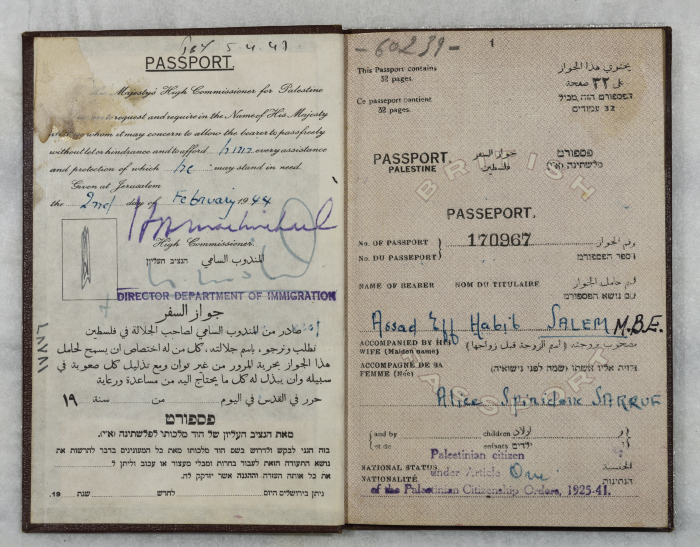 5.4.47
PASSPORT.
Majesty's High Commissioner for Palestine
to request and require in the Name of His Majesty
whom it may concern to allow the bearer to pass freely
without let or hindrance and to afford him every assistance
and protection of which he may stand in need.
Given at Jerusalem
the 2nd day of February 1944
High Commissioner.
المندوب السامي הנציב העליון
DIRECTOR DEPARTMENT OF IMMIGRATION
جواز السفر
صادر من المندوب السامي لصاحب الجلالة في فلسطين
نطلب ونرجو، باسم جلالته، كل من له اختصاص ان يسمح لحامل
هذا الجواز بحرية المرور من غير توان ومع تذليل كل صعوبة في
سبيله وان يبذل له كل ما يحتاج اليه من مساعدة ورعاية
حرر في القدس في اليوم من سنة ١٩
פספורט
מאת הנציב העליון של הוד מלכותו לפלשתינה א״י.
בזה הנני לבקש ולדרוש בשם הוד מלכותו מאת כל הממונים בדבר להרשות את
נושא התעודה הזאת לעבור בחרות ומבלי מעצור או עכוב וליתן לו
את כל אותה העזרה וההגנה אשר יזדקק לה.
ניתן בירושלים היום לחדש שנת 19
-60239-
1
This Passport contains
32 pages.
يحتوي هذا الجواز
على ٣٢ صفحة
Ce passeport contient
32 pages.
הפספורט הזה מכיל
32 עמודים
PASSPORT.
PALESTINE
جواز السفر
فلسطين
פספורט
פלשתינה (א״י)
BRITISH
PASSPORT
PASSEPORT.
No. OF PASSPORT
No. DU PASSEPORT
170967
رقم الجواز
מספר הפספורט
NAME OF BEARER NOM DU TITULAIRE اسم حامل الجواز
שם נושא הפספורט
Assad Eff Habib SALEM M.B.E.
ACCOMPANIED BY HIS
WIFE (Maiden name)
مصحوب بزوجته (اسم الزوجة قبل زواجها)
ACCOMPAGNE DE SA
FEMME (Née)
נלוית אליו אשתו (שמה לפני נישואיה)
Alice Spiridon SARRUF
and by children اولاد و
et de enfants ילדים
Palestinian citizen
NATIONAL STATUS
under Article One
الجنسية
NATIONALITÉ.
הנתינות
of the Palestinian Citizenship Orders, 1925-41.